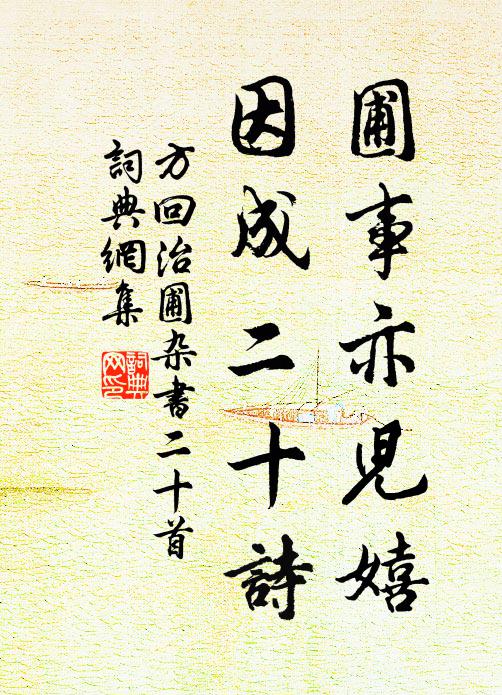 圃事亦児嬉
因成二十詩
方回治圃杂書二十首
詞典網集
詞典网印